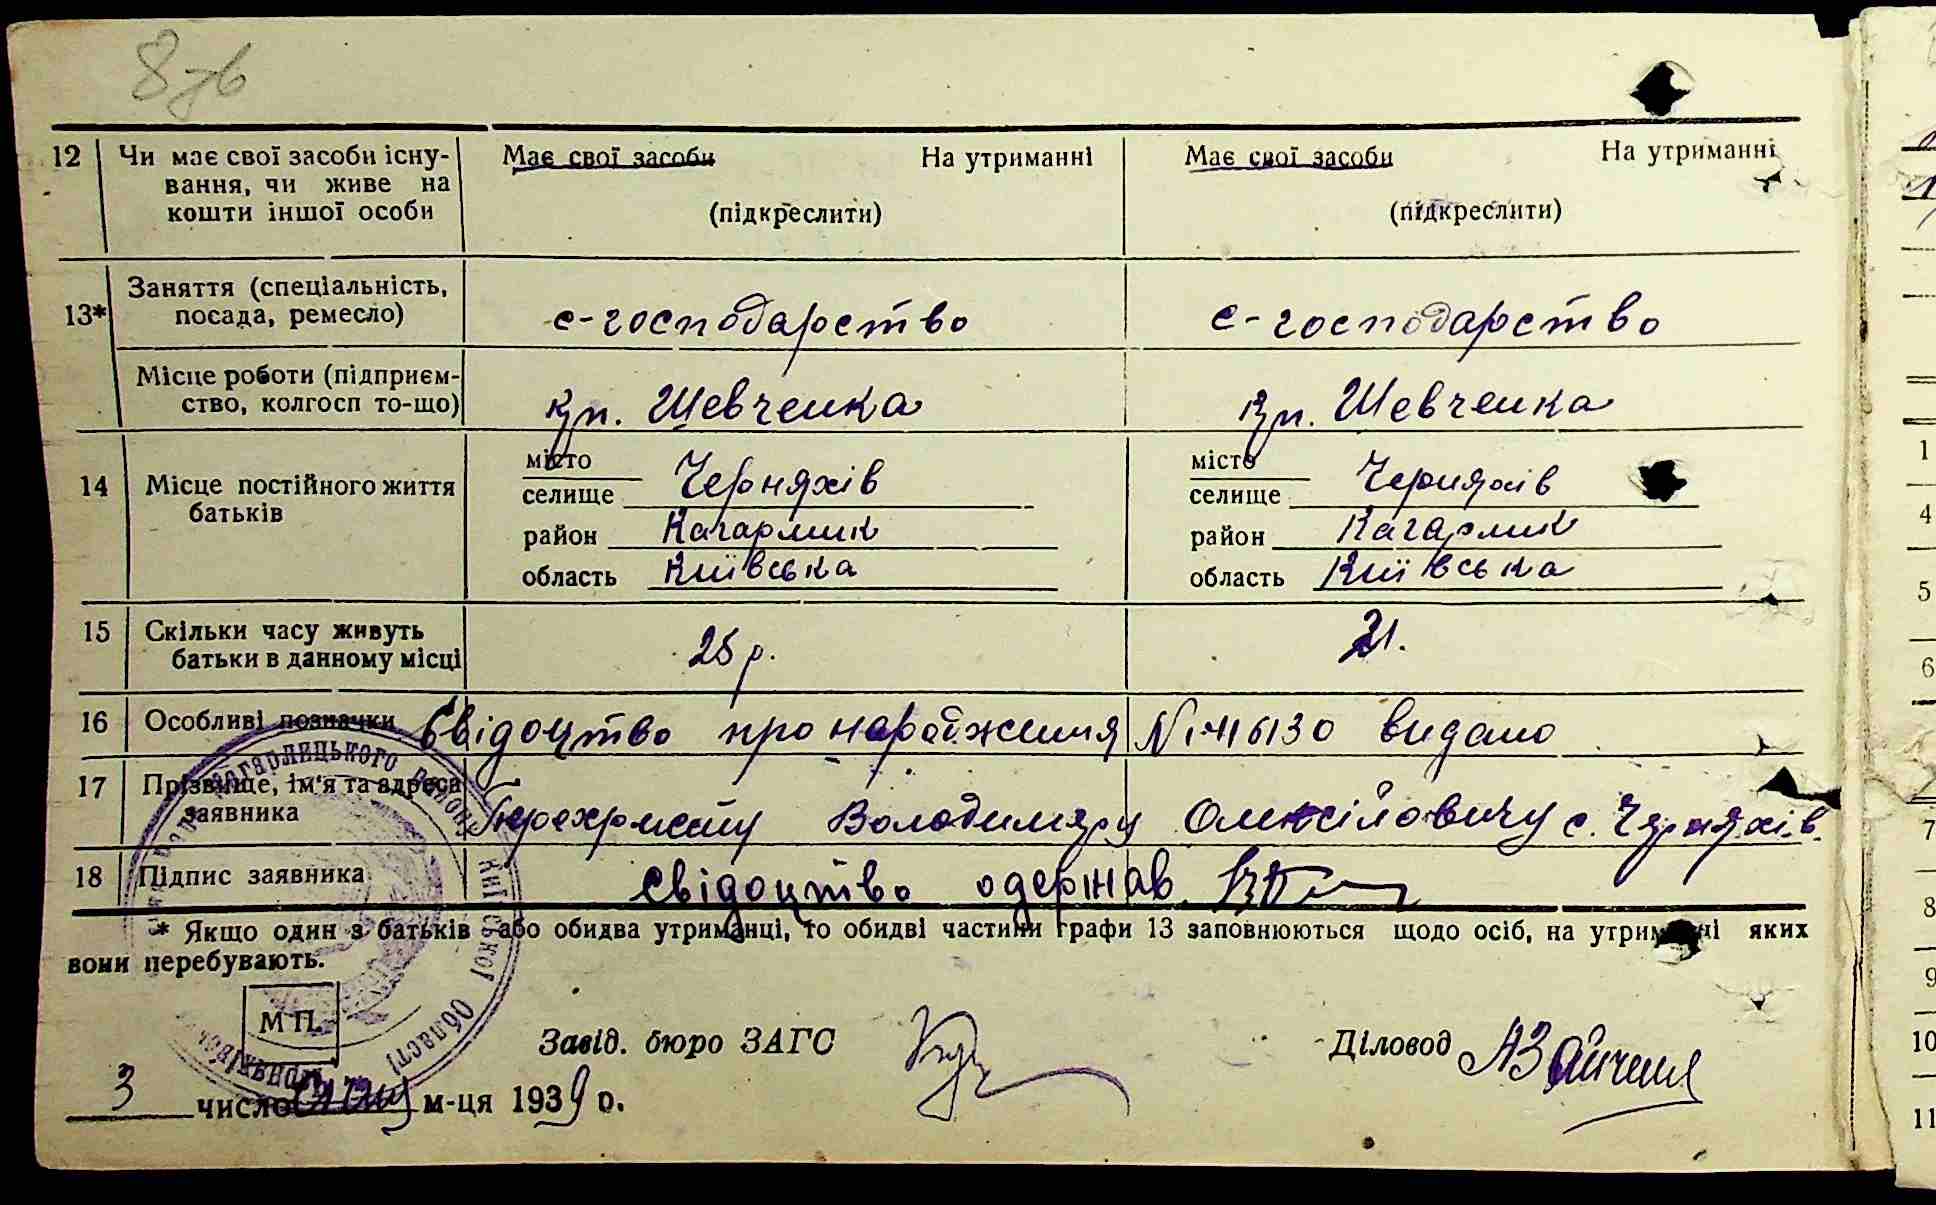 8 зв
12 Чи має свої засоби існу- Має свої засоби На утриманні Має свої засоби На утриманні
вання, чи живе на
кошти іншої особи (підкреслити) (підкреслити)
13* Заняття (спеціальність,
посада, ремесло) с-господарство с-господарство
Місце роботи (підприєм-
ство, колгосп то-що) Шевченка Шевченка
14 Місце постійного життя
батьків
місто
селище Черняхів
район Кагарлик
область Київська
місто
селище Черняхів
район Кагарлик
область Київська
15 Скільки часу живуть
батьки в данному місці 25 р. 21.
16 Особливі позначки Свідоцтво про народження № видано
17 Прізвище, ім'я та адреса
заявника Володимиру Олексійовичу с. Черняхів.
18 Підпис заявника свідоцтво одержав.
* Якщо один з батьків або обидва утриманці, то обидві частини графи 13 заповнюються щодо осіб, на утриманні яких
вони перебувають.
М П.
Завід. бюро ЗАГС Діловод
3 число м-ця 1939 р.
Кагарлицького району Київської Області
1
4
5
6
7
8
9
10
11